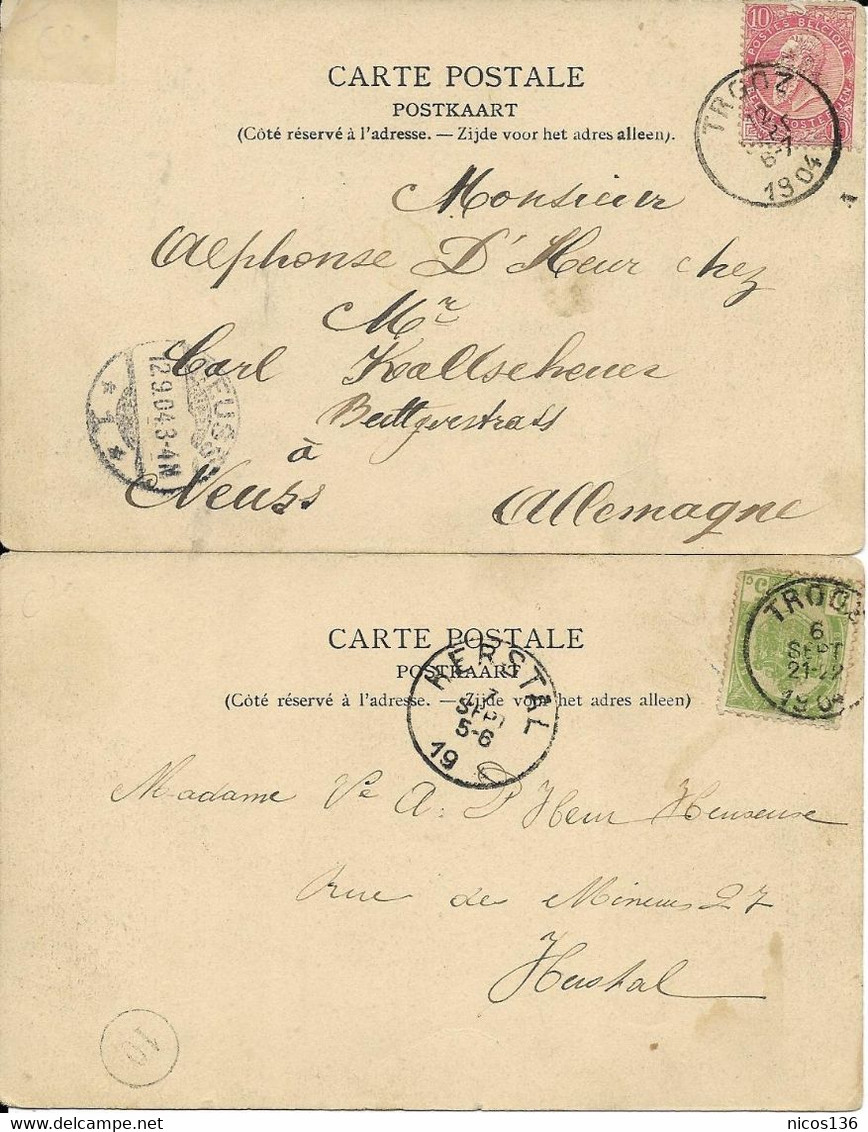 10
POSTES BELGIQUE
TROOZ
1904
CARTE POSTALE
POSTKAART
(Côté réservé à l'adresse. — Zijde voor het adres alleen).
Monsieur
Alphonse D'Heur chez
Mr
Carl Kallscheuer
à
Neuss Allemagne
NEUSS
12.9.04.3-4N
* 1 *
CARTE POSTALE
POSTKAART
(Côté réservé à l'adresse. — Zijde voor het adres alleen)
TROOZ
6
SEPT
21-22
1904
HERSTAL
7
SEPT
5-6
19
Madame Ve A. D'Heur Heuseuse
Rue des Mineurs 27
Herstal
10
nicos136